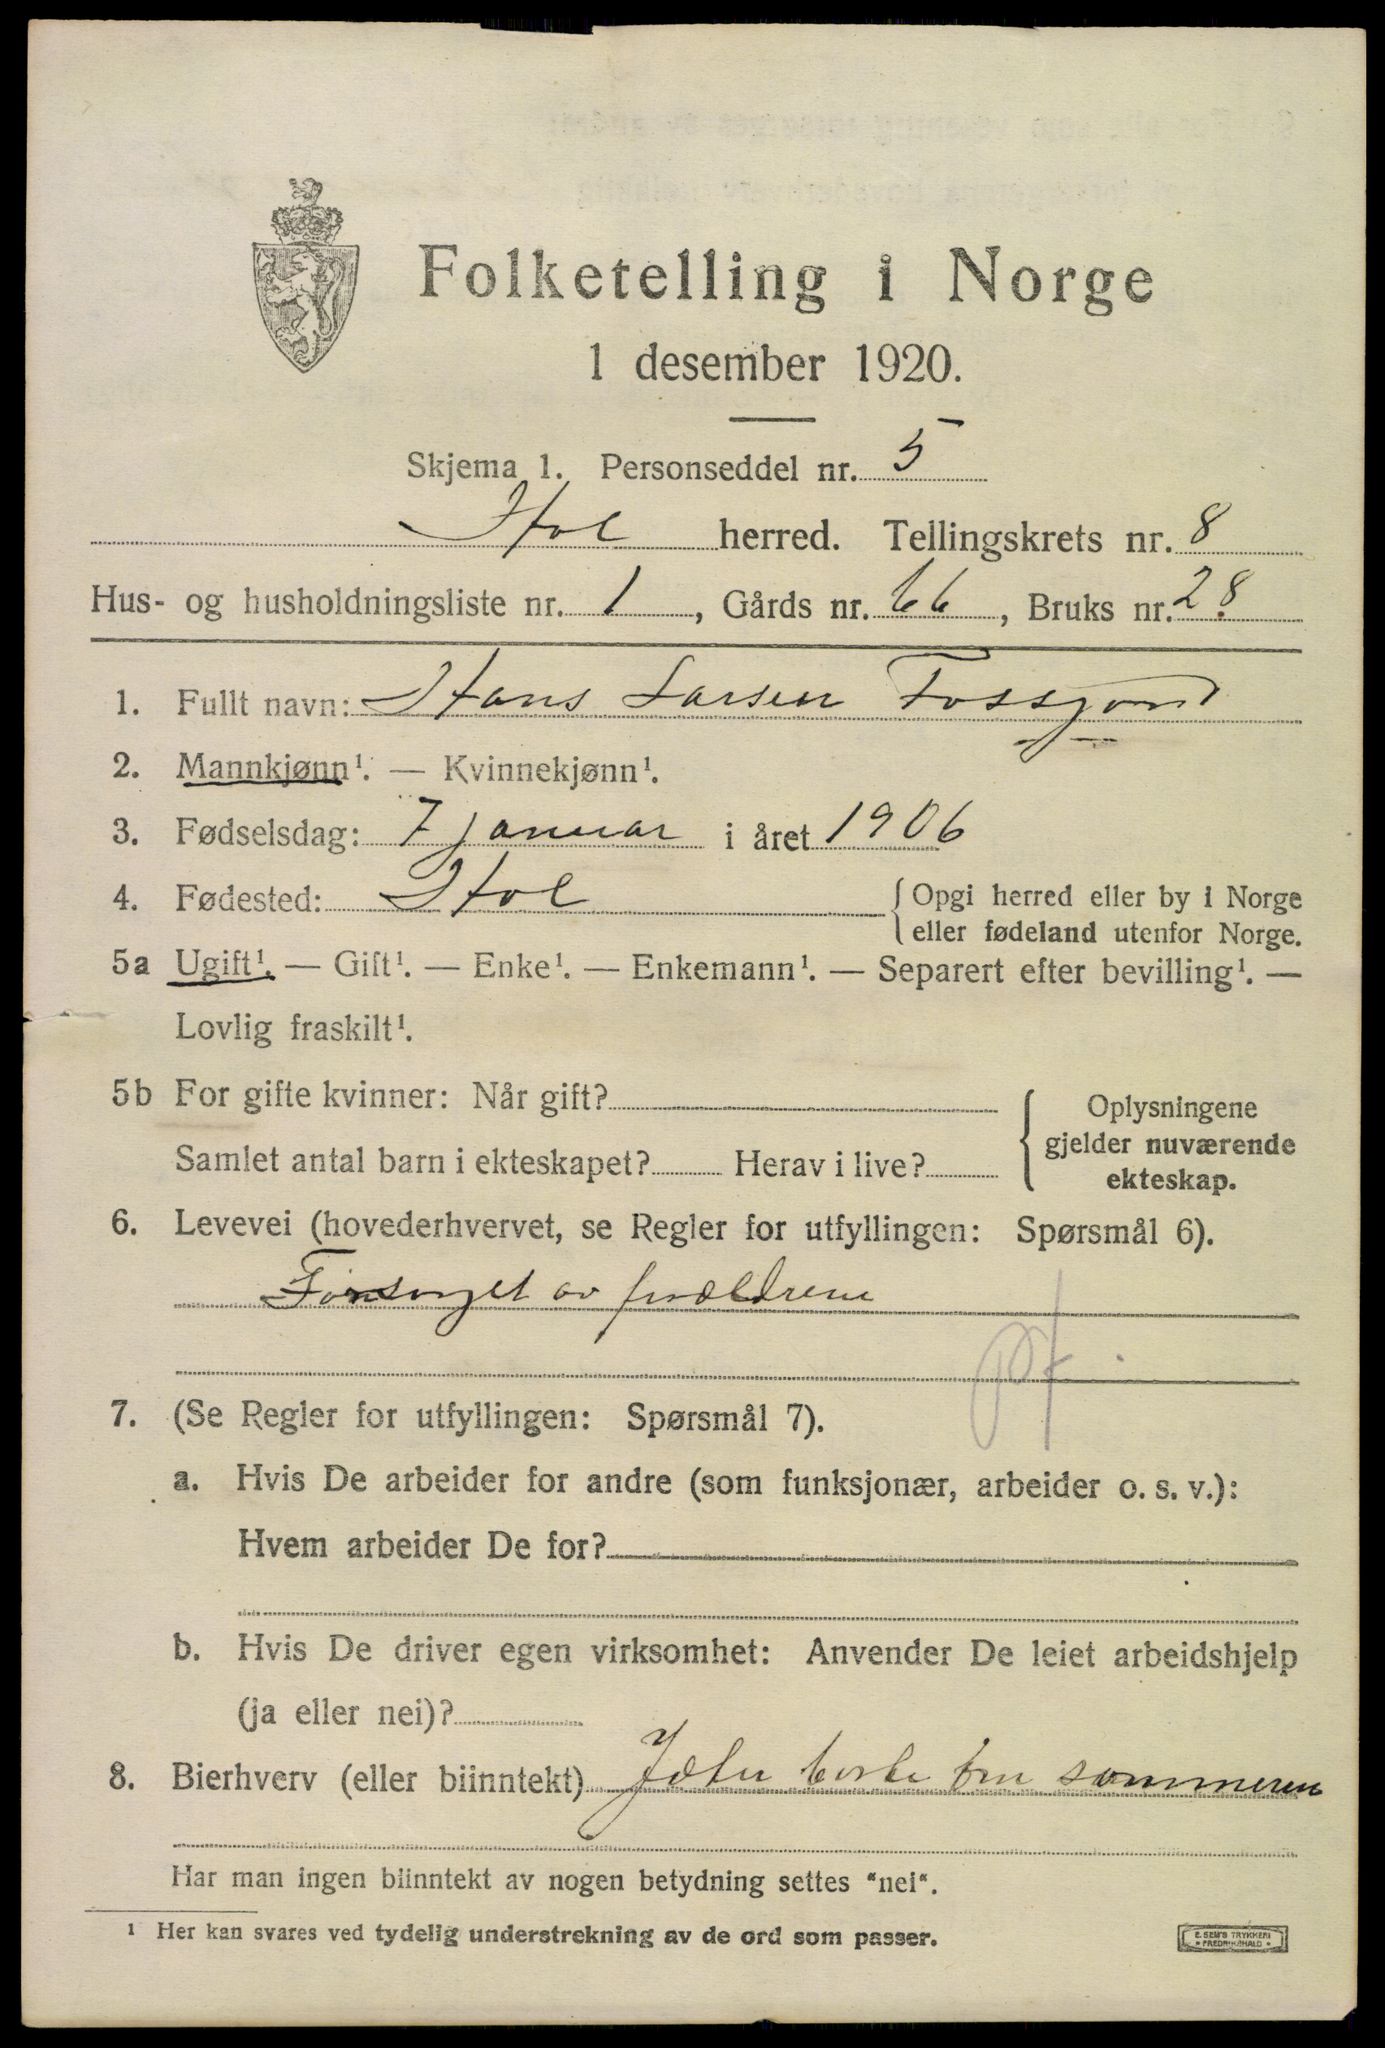 Folketelling i Norge
1 desember 1920.
Skjema 1. Personseddel nr. 5
Hol herred. Tellingskrets nr. 8
Hus- og husholdningsliste nr. 1, Gårds nr. 66, Bruks nr. 28
1. Fullt navn: Hans Larsen Fossgord
2. Mannkjønn¹. — Kvinnekjønn¹.
3. Fødselsdag: 7 januar i året 1906
4. Fødested: Hol { Opgi herred eller by i Norge
eller fødeland utenfor Norge.
5a Ugift¹. — Gift¹. — Enke¹. — Enkemann¹. — Separert efter bevilling¹. —
Lovlig fraskilt¹.
5b For gifte kvinner: Når gift?
Samlet antal barn i ekteskapet? Herav i live?
{ Oplysningene
gjelder nuværende
ekteskap.
6. Levevei (hovederhvervet, se Regler for utfyllingen: Spørsmål 6).
Forsørget av foreldrene
7. (Se Regler for utfyllingen: Spørsmål 7).
a. Hvis De arbeider for andre (som funksjonær, arbeider o. s. v.):
Hvem arbeider De for?
b. Hvis De driver egen virksomhet: Anvender De leiet arbeidshjelp
(ja eller nei)?
8. Bierhverv (eller biinntekt) Jæter borte om sommeren
Har man ingen biinntekt av nogen betydning settes "nei".
¹ Her kan svares ved tydelig understrekning av de ord som passer.
E. SEM'S TRYKKERI
• FREDRIKSHALD •